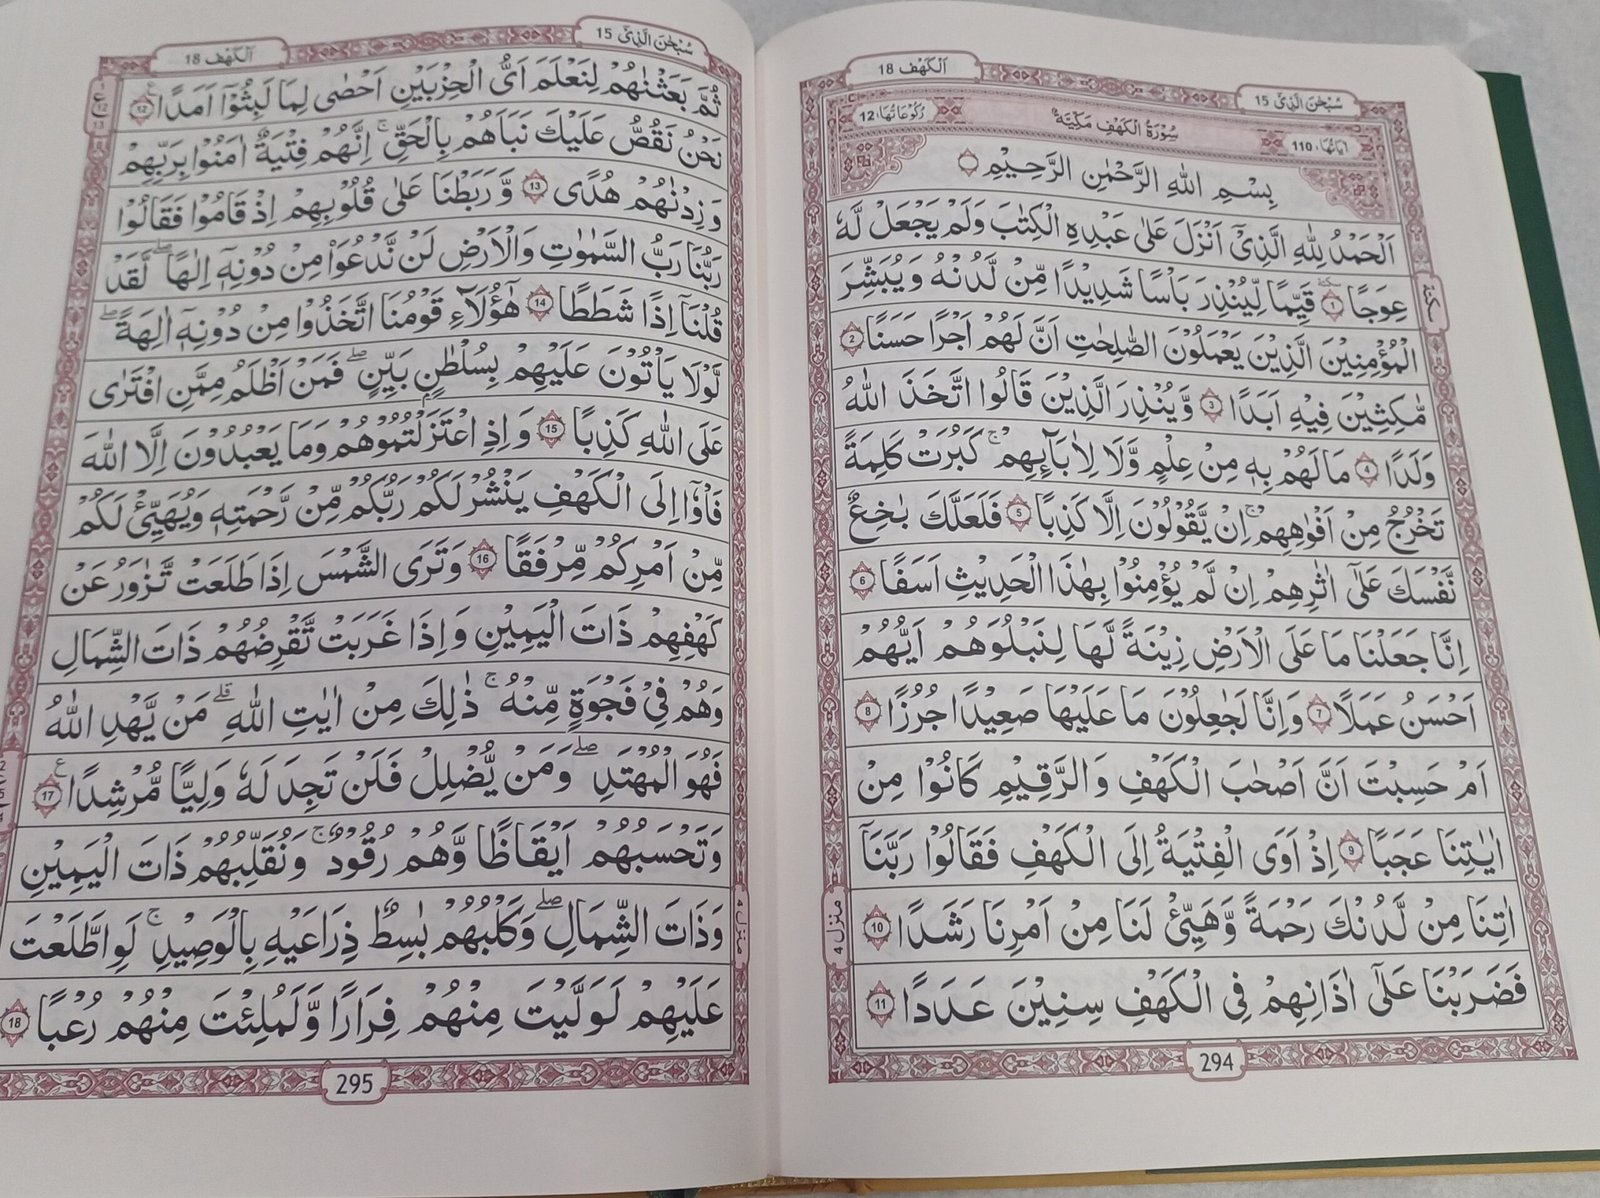 اَلْكَهْف 18
سُبْحٰنَ الَّذِيْٓ 15
رُكُوْعَاتُهَا، 12
سُوْرَةُ الْكَهْفِ مَكِّيَّةٌ
اٰيَاتُهَا، 110
بِسْمِ اللّٰهِ الرَّحْمٰنِ الرَّحِيْمِ
اَلْحَمْدُ لِلّٰهِ الَّذِيْٓ اَنْزَلَ عَلٰى عَبْدِهِ الْكِتٰبَ وَلَمْ يَجْعَلْ لَّهٗ
عِوَجًا ۜ 1 قَيِّمًا لِّيُنْذِرَ بَاْسًا شَدِيْدًا مِّنْ لَّدُنْهُ وَيُبَشِّرَ
الْمُؤْمِنِيْنَ الَّذِيْنَ يَعْمَلُوْنَ الصّٰلِحٰتِ اَنَّ لَهُمْ اَجْرًا حَسَنًا 2
مّٰكِثِيْنَ فِيْهِ اَبَدًا 3 وَّيُنْذِرَ الَّذِيْنَ قَالُوا اتَّخَذَ اللّٰهُ
وَلَدًا 4 مَا لَهُمْ بِهٖ مِنْ عِلْمٍ وَّلَا لِاٰبَآئِهِمْ ۚ كَبُرَتْ كَلِمَةً
تَخْرُجُ مِنْ اَفْوَاهِهِمْ ۚ اِنْ يَّقُوْلُوْنَ اِلَّا كَذِبًا 5 فَلَعَلَّكَ بٰخِعٌ
نَّفْسَكَ عَلٰٓى اٰثَارِهِمْ اِنْ لَّمْ يُؤْمِنُوْا بِهٰذَا الْحَدِيْثِ اَسَفًا 6
اِنَّا جَعَلْنَا مَا عَلَى الْاَرْضِ زِيْنَةً لَّهَا لِنَبْلُوَهُمْ اَيُّهُمْ
اَحْسَنُ عَمَلًا 7 وَاِنَّا لَجٰعِلُوْنَ مَا عَلَيْهَا صَعِيْدًا جُرُزًا 8
اَمْ حَسِبْتَ اَنَّ اَصْحٰبَ الْكَهْفِ وَالرَّقِيْمِ كَانُوْا مِنْ
اٰيٰتِنَا عَجَبًا 9 اِذْ اَوَى الْفِتْيَةُ اِلَى الْكَهْفِ فَقَالُوْا رَبَّنَآ
اٰتِنَا مِنْ لَّدُنْكَ رَحْمَةً وَّهَيِّئْ لَنَا مِنْ اَمْرِنَا رَشَدًا 10
فَضَرَبْنَا عَلٰٓى اٰذَانِهِمْ فِى الْكَهْفِ سِنِيْنَ عَدَدًا 11
سكتة
منزل 4
294
اَلْكَهْف 18
سُبْحٰنَ الَّذِيْٓ 15
ثُمَّ بَعَثْنٰهُمْ لِنَعْلَمَ اَيُّ الْحِزْبَيْنِ اَحْصٰى لِمَا لَبِثُوْٓا اَمَدًا ع 12
نَحْنُ نَقُصُّ عَلَيْكَ نَبَاَهُمْ بِالْحَقِّ ۚ اِنَّهُمْ فِتْيَةٌ اٰمَنُوْا بِرَبِّهِمْ
وَزِدْنٰهُمْ هُدًى 13 وَّرَبَطْنَا عَلٰى قُلُوْبِهِمْ اِذْ قَامُوْا فَقَالُوْا
رَبُّنَا رَبُّ السَّمٰوٰتِ وَالْاَرْضِ لَنْ نَّدْعُوَا۟ مِنْ دُوْنِهٖٓ اِلٰهًا ۖ لَّقَدْ
قُلْنَآ اِذًا شَطَطًا 14 هٰٓؤُلَآءِ قَوْمُنَا اتَّخَذُوْا مِنْ دُوْنِهٖٓ اٰلِهَةً ۖ
لَّوْلَا يَاْتُوْنَ عَلَيْهِمْ بِسُلْطٰنٍۭ بَيِّنٍ ۖ فَمَنْ اَظْلَمُ مِمَّنِ افْتَرٰى
عَلَى اللّٰهِ كَذِبًا 15 وَاِذِ اعْتَزَلْتُمُوْهُمْ وَمَا يَعْبُدُوْنَ اِلَّا اللّٰهَ
فَاْوٗٓا اِلَى الْكَهْفِ يَنْشُرْ لَكُمْ رَبُّكُمْ مِّنْ رَّحْمَتِهٖ وَيُهَيِّئْ لَكُمْ
مِّنْ اَمْرِكُمْ مِّرْفَقًا 16 وَتَرَى الشَّمْسَ اِذَا طَلَعَتْ تَّزٰوَرُ عَنْ
كَهْفِهِمْ ذَاتَ الْيَمِيْنِ وَاِذَا غَرَبَتْ تَّقْرِضُهُمْ ذَاتَ الشِّمَالِ
وَهُمْ فِيْ فَجْوَةٍ مِّنْهُ ۚ ذٰلِكَ مِنْ اٰيٰتِ اللّٰهِ ۗ مَنْ يَّهْدِ اللّٰهُ
فَهُوَ الْمُهْتَدِ ۖ وَمَنْ يُّضْلِلْ فَلَنْ تَجِدَ لَهٗ وَلِيًّا مُّرْشِدًا ع 17
وَتَحْسَبُهُمْ اَيْقَاظًا وَّهُمْ رُقُوْدٌ ۚ وَّنُقَلِّبُهُمْ ذَاتَ الْيَمِيْنِ
وَذَاتَ الشِّمَالِ ۖ وَكَلْبُهُمْ بٰسِطٌ ذِرَاعَيْهِ بِالْوَصِيْدِ ۚ لَوِ اطَّلَعْتَ
عَلَيْهِمْ لَوَلَّيْتَ مِنْهُمْ فِرَارًا وَّلَمُلِئْتَ مِنْهُمْ رُعْبًا 18
منزل 4
295